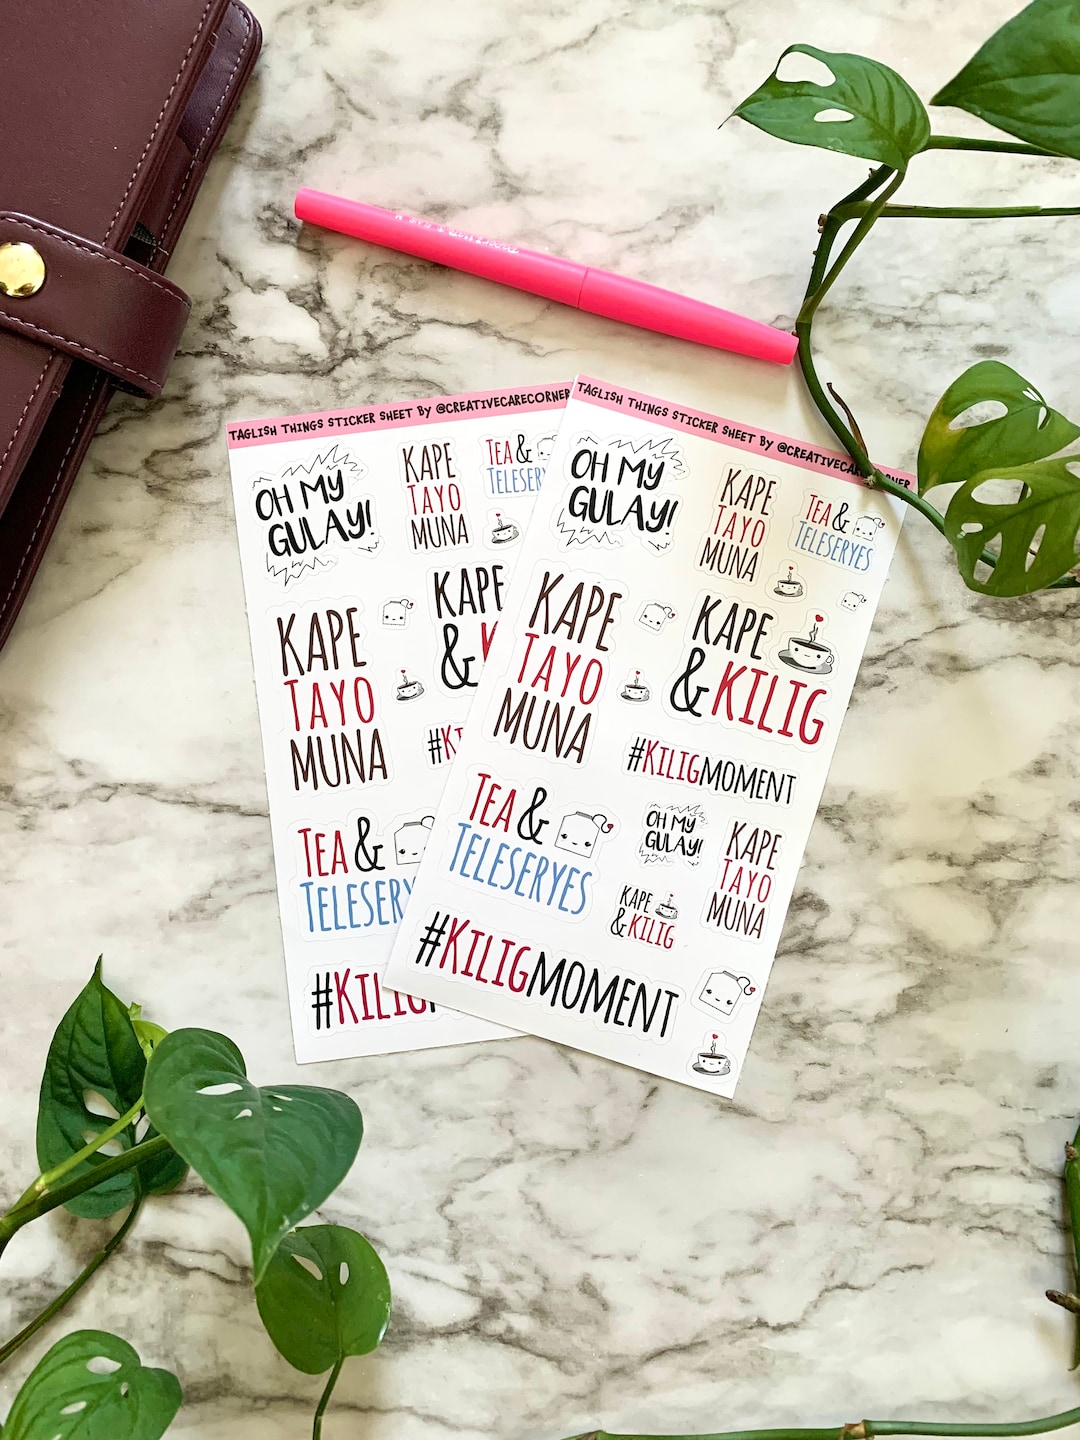 TAGLISH THINGS STICKER SHEET BY @CREATIVECARECORNER
OH MY
GULAY!
KAPE
TAYO
MUNA
TEA &
TELESER
KAPE
TAYO
MUNA
KAPE
&
TEA &
TELESER
#KILIG
TAGLISH THINGS STICKER SHEET BY @CREATIVECARECORNER
OH MY
GULAY!
KAPE
TAYO
MUNA
TEA &
TELESERYES
KAPE
TAYO
MUNA
KAPE
& KILIG
#KILIGMOMENT
TEA &
TELESERYES
OH MY
GULAY!
KAPE
TAYO
MUNA
KAPE
& KILIG
#KILIGMOMENT